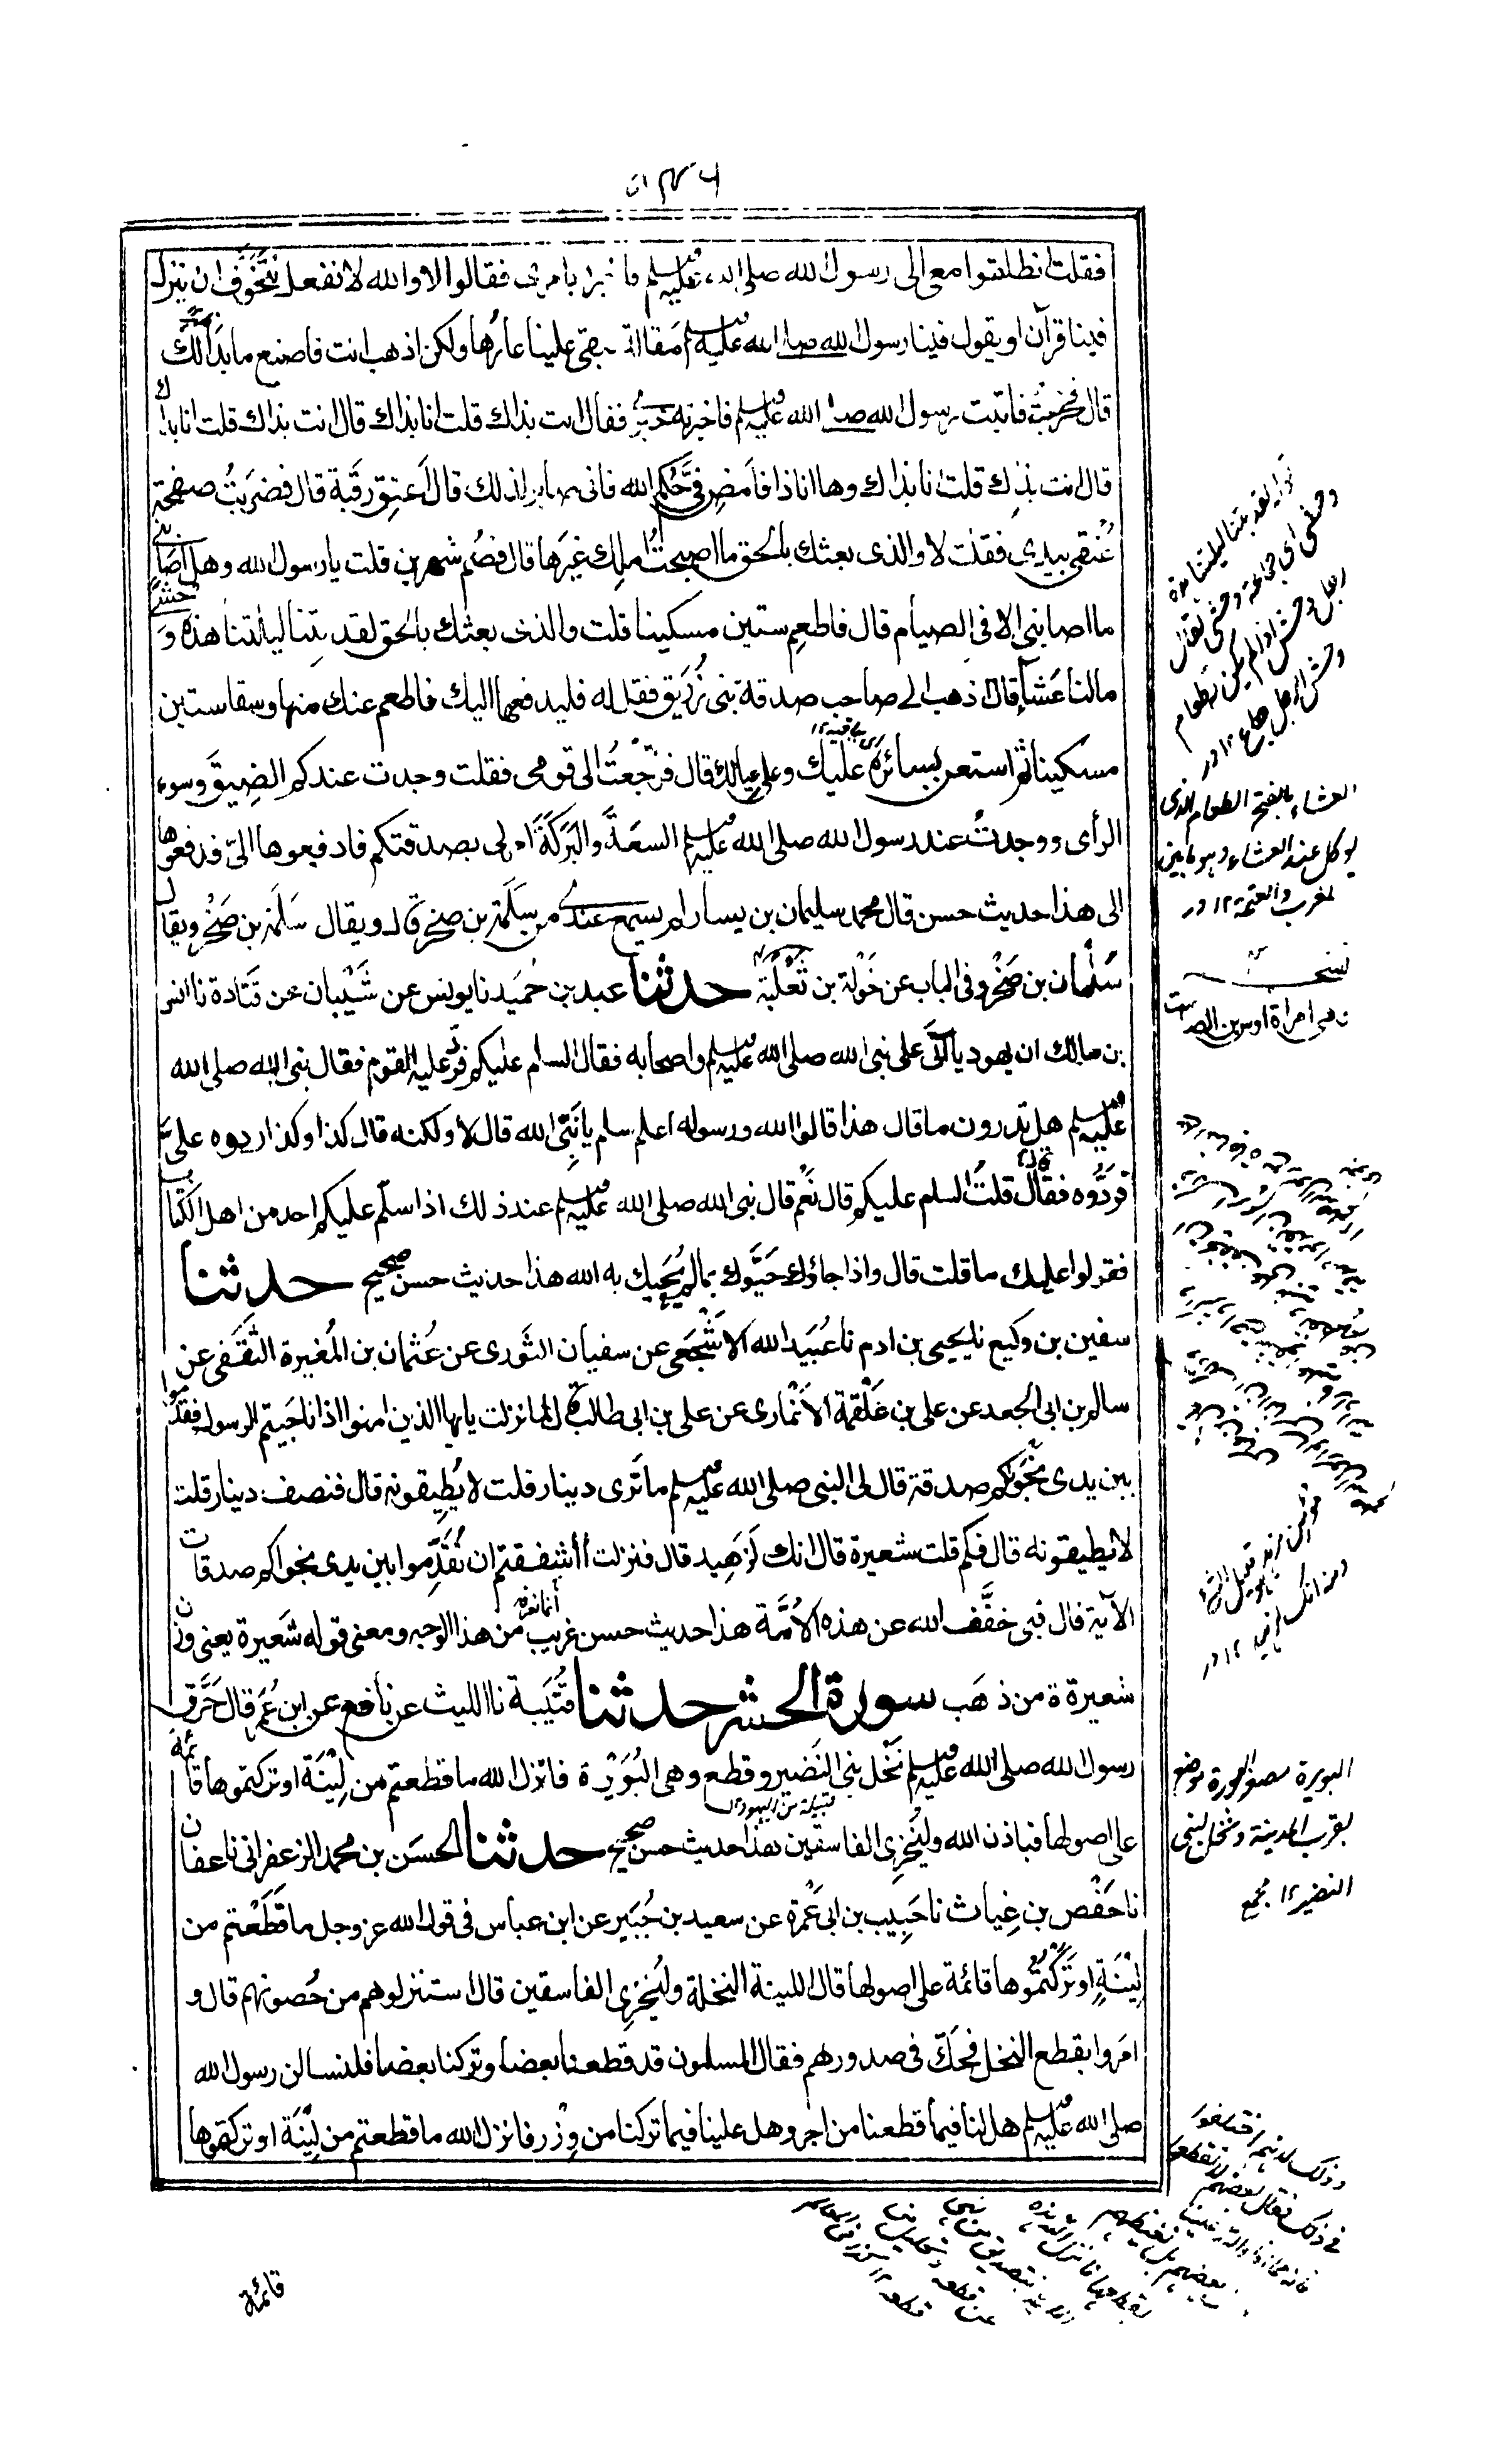 فقلت انطلقوا معى الى رسول الله صلى الله عليه وسلم فاخبره بامرى فقالوا لا والله لا نفعل نتخوّف ان ينزل
فينا قرآن او يقول فينا رسول الله صلى الله عليه وسلم مقالة يبقى علينا عارها ولكن اذهب انت فاصنع ما بدا لك
قال فخرجت فاتيت رسول الله صلى الله عليه وسلم فاخبرته خبرى فقال انت بذاك قلت انا بذاك قال انت بذاك قلت انا بذاك
قال انت بذاك قلت انا بذاك وها انا ذا فامض فىّ حكم الله فانى صابر لذلك قال اعتق رقبة قال فضربت صفحة
عنقى بيدى فقلت لا والذى بعثك بالحق ما اصبحت املك غيرها قال فصم شهرين قلت يا رسول الله وهل اصابنى
ما اصابنى الا فى الصيام قال فاطعم ستين مسكينا قلت والذى بعثك بالحق لقد بتنا ليلتنا هذه وحشى
ما لنا عشاء قال اذهب الى صاحب صدقة بنى زريق فقل له فليدفعها اليك فاطعم عنك منها وسقا ستين
مسكينا ثم استعن بسائره عليك وعلى عيالك قال فرجعت الى قومى فقلت وجدت عندكم الضيق وسوء
الرأى ووجدت عند رسول الله صلى الله عليه وسلم السعة والبركة امر لى بصدقتكم فادفعوها الىّ فدفعوها
الى هذا حديث حسن قال محمد سليمان بن يسار لم يسمع عندى من سلمة بن صخر قال ويقال سلمة بن صخر ويقال
سلمان بن صخر وفى الباب عن خولة بن ثعلبة حدثنا عبد بن حميد نا يونس عن شيبان عن قتادة نا انس
بن مالك ان يهوديا اتى على نبى الله صلى الله عليه وسلم واصحابه فقال السام عليكم فردّ عليه القوم فقال نبى الله صلى الله
عليه وسلم هل تدرون ما قال هذا قالوا الله ورسوله اعلم سلم يا نبىّ الله قال لا ولكنه قال كذا وكذا ردوه علىّ
فردّوه فقال قلت السام عليكم قال نعم قال نبى الله صلى الله عليه وسلم عند ذلك اذا سلّم عليكم احد من اهل الكتاب
فقولوا عليك ما قلت قال واذا جاؤك حيّوك بما لم يحيك به الله هذا حديث حسن صحيح حدثنا
سفين بن وكيع نا يحيى بن ادم نا عبيد الله الاشجعى عن سفيان الثورى عن عثمان بن المغيرة الثقفى عن
سالم بن ابى الجعد عن على بن علقمة الانمارى عن على بن ابى طالب قال لما نزلت يايها الذين امنوا اذا ناجيتم الرسول فقدموا
بين يدى نجواكم صدقة قال لى النبى صلى الله عليه وسلم ما ترى دينار قلت لا يطيقونه قال فنصف دينار قلت
لا يطيقونه قال فكم قلت شعيرة قال انك لزهيد قال فنزلت أأشفقتم ان تقدّموا بين يدى نجواكم صدقات
الآية قال فبى خفّف الله عن هذه الامّة هذا حديث حسن غريب انما نعرفه من هذا الوجه ومعنى قوله شعيرة يعنى وزن
شعيرة من ذهب سورة الحشر حدثنا قتيبة نا الليث عن نافع عن ابن عمر قال حرّق
رسول الله صلى الله عليه وسلم نخل بنى النضير وقطع وهى البويرة فانزل الله ما قطعتم من لينة او تركتموها قائمة
قبيلة من اليهود ١٢
على اصولها فباذن الله وليخزى الفاسقين هذا حديث حسن صحيح حدثنا الحسن بن محمد الزعفرانى نا عفان
نا حفص بن غياث نا حبيب بن ابى عمرة عن سعيد بن جبير عن ابن عباس فى قول الله عز وجل ما قطعتم من
لينة او تركتموها قائمة على اصولها قال اللينة النخلة وليخزى الفاسقين قال استنزلوهم من حصونهم قال و
امروا بقطع النخل فحكّ فى صدورهم فقال المسلمون قد قطعنا بعضا وتركنا بعضا فلنسالن رسول الله
صلى الله عليه وسلم هل لنا فيما قطعنا من اجر وهل علينا فيما تركنا من وزر فانزل الله ما قطعتم من لينة او تركتموها
قائمة
العشاء بالفتح الطعام الذى
يوكل عند العشاء وهو ما بين
المغرب والعتمة ١٢ در
وهى امراة اوس بن الصامت
البويرة مصغر البورة موضع
بقرب المدينة ونخل لبنى
النضير ١٢ مجمع